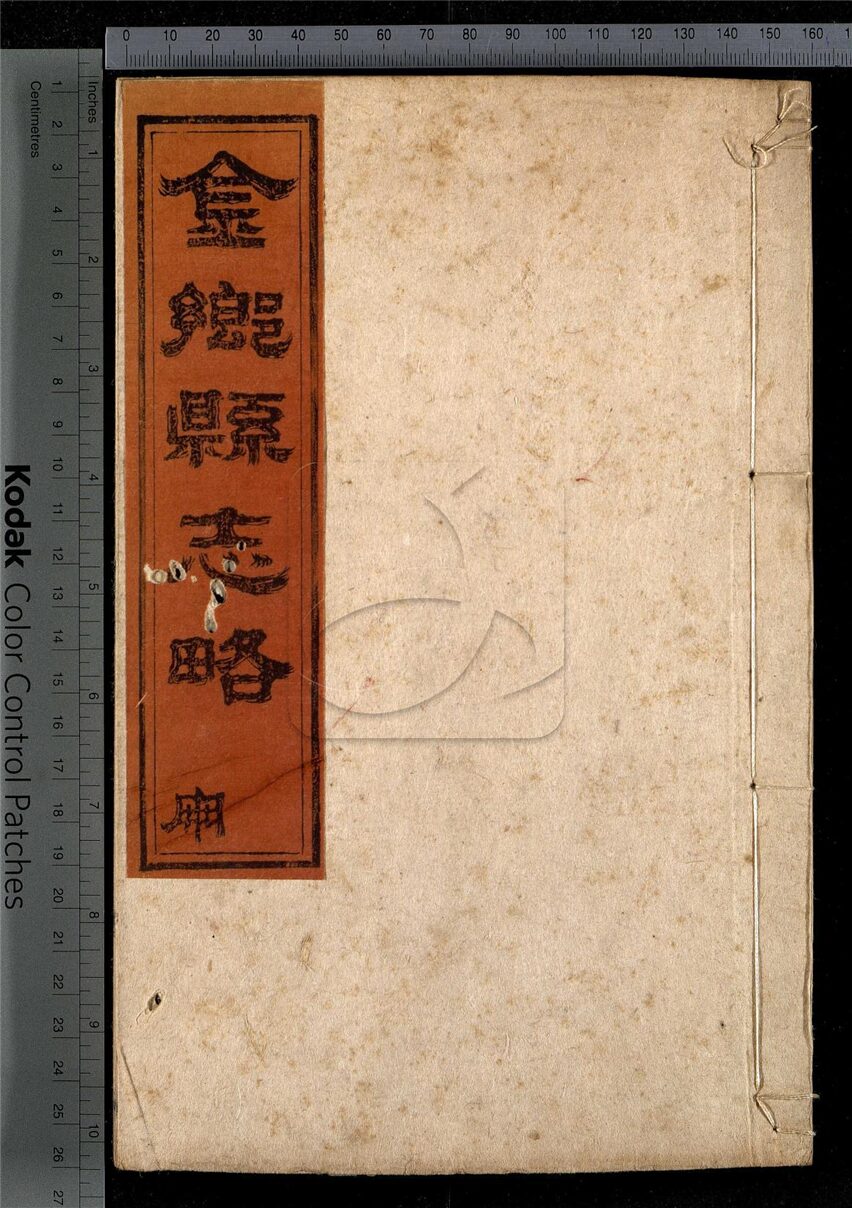 0 10 20 30 40 50 60 70 80 90 100 110 120 130 140 150 160
金鄉縣志略
Inches 1 2 3 4 5 6 7 8 9 10
Centimetres 1 2 3 4 5 6 7 8 9 10 11 12 13 14 15 16 17 18 19 20 21 22 23 24 25 26 27
Kodak Color Control Patches